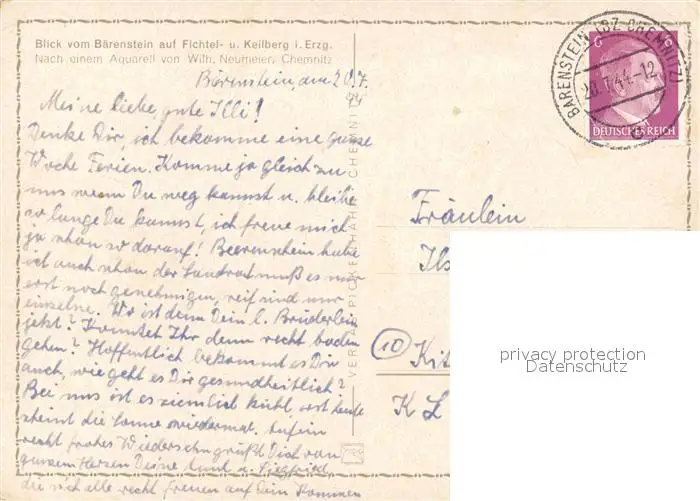 Blick vom Bärenstein auf Fichtel- u. Keilberg i. Erzg.
Nach einem Aquarell von Wilh. Neumeier, Chemnitz
Bärenstein, am 20.7.
44
Meine liebe, gute Illi!
Denke Dir, ich bekomme eine ganze
Woche Ferien. Komme ja gleich zu
uns wenn Du weg kannst u. bleibe
so lange Du kannst, ich freue mich
ja schon so darauf! Beerenschein habe
ich auch schon der Landrat muß es nur
erst noch genehmigen, reif sind nur
einzelne. Wo ist denn Dein l. Brüderlein
jetzt? Konntet Ihr denn recht baden
gehen? Hoffentlich bekommt es Dir
auch, wie geht es Dir gesundheitlich?
Bei uns ist es ziemlich kühl, erst heute
scheint die Sonne wiedermal. Auf ein
recht frohes Wiedersehn grüßt Dich von
ganzem Herzen Deine u. Siegfried,
die sich alle recht freuen auf Dein Kommen
VERLAG PICKENHAHN CHEMNITZ
BÄRENSTEIN (BZ CHEMNITZ)
20.7.44.-12
6 6
DEUTSCHES REICH
Fräulein
Ils
(10) Kit
K L
privacy protection
Datenschutz